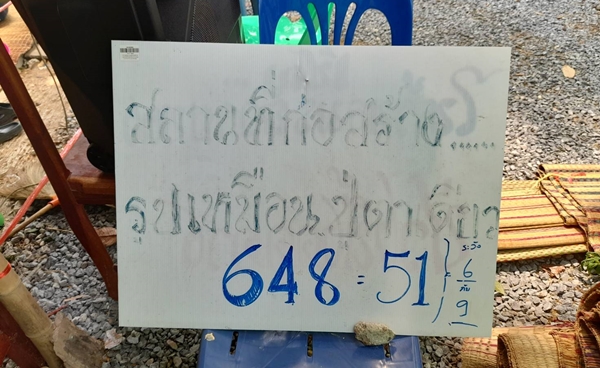 สถานที่ก่อสร้าง......
รูปเหมือนปู่ตาเดียว
648 = 51
ระวัง
6
กับ
9